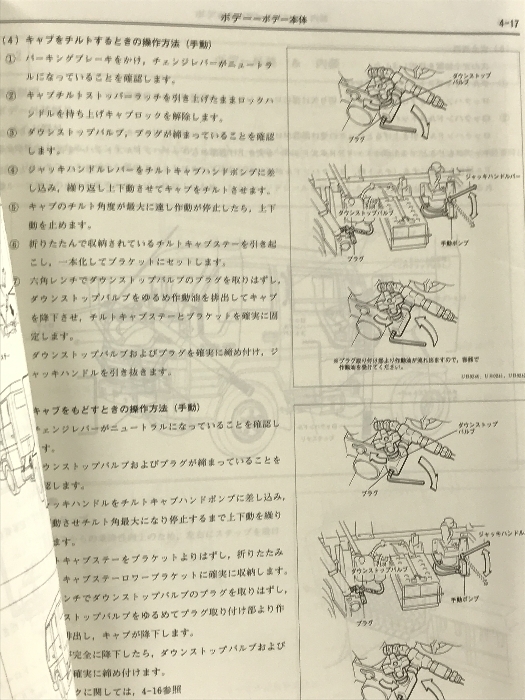 ボデー－ボデー本体
4-17
(4) キャブをチルトするときの操作方法（手動）
① パーキングブレーキをかけ，チェンジレバーがニュートラ
ルになっていることを確認します。
② キャブチルトストッパーラッチを引き上げたままロックハ
ンドルを持ち上げキャブロックを解除します。
③ ダウンストップバルブ，プラグが締まっていることを確認
します。
④ ジャッキハンドルレバーをチルトキャブハンドポンプに差
し込み，繰り返し上下動させてキャブをチルトさせます。
⑤ キャブのチルト角度が最大に達し作動が停止したら，上下
動を止めます。
⑥ 折りたたんで収納されているチルトキャブステーを引き起
こし，一本化してブラケットにセットします。
六角レンチでダウンストップバルブのプラグを取りはずし，
ダウンストップバルブをゆるめ作動油を排出してキャブ
を降下させ，チルトキャブステーとブラケットを確実に固
定します。
ダウンストップバルブおよびプラグを確実に締め付け，ジ
ャッキハンドルを引き抜きます。
ダウンストップ
バルブ
プラグ
ジャッキハンドルバー
ダウンストップバルブ
手動ポンプ
プラグ
※プラグ取り付け部より作動油が流れ出ますので，容器で
作動油を受けてください。
キャブをもどすときの操作方法（手動）
チェンジレバーがニュートラルになっていることを確認し
す。
ウンストップバルブおよびプラグが締まっていることを
認します。
ッキハンドルをチルトキャブハンドポンプに差し込み，
動させチルト角最大になり停止するまで上下動を繰り
ます。
トキャブステーをブラケットよりはずし，折りたたみ
キャブステーロワーブラケットに確実に収納します。
ンチでダウンストップバルブのプラグを取りはずし，
ストップバルブをゆるめてプラグ取り付け部より作
排出し，キャブが降下します。
完全に降下したら，ダウンストップバルブおよび
確実に締め付けます。
クに関しては，4-16参照
ダウンストップ
バルブ
プラグ
ジャッキハンドル
ダウンストップバルブ
手動ポンプ
プラグ